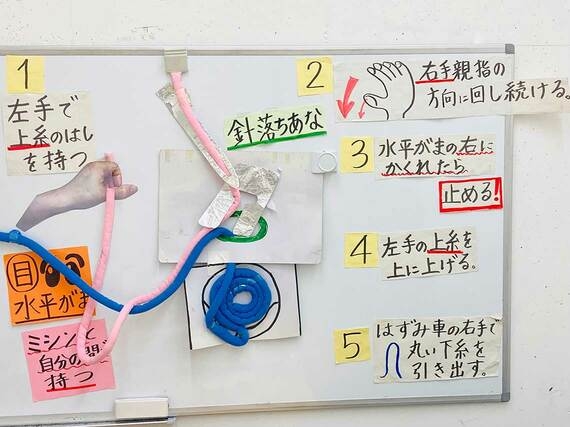 1
左手で
上糸のはし
を持つ
目
水平がま
ミシンと
自分の間で
持つ
針落ちあな
2
右手親指の
方向に回し続ける。
3
水平がまの右に
かくれたら
止める!
4
左手の上糸を
上に上げる。
5
はずみ車の右手で
丸い下糸を
引き出す。